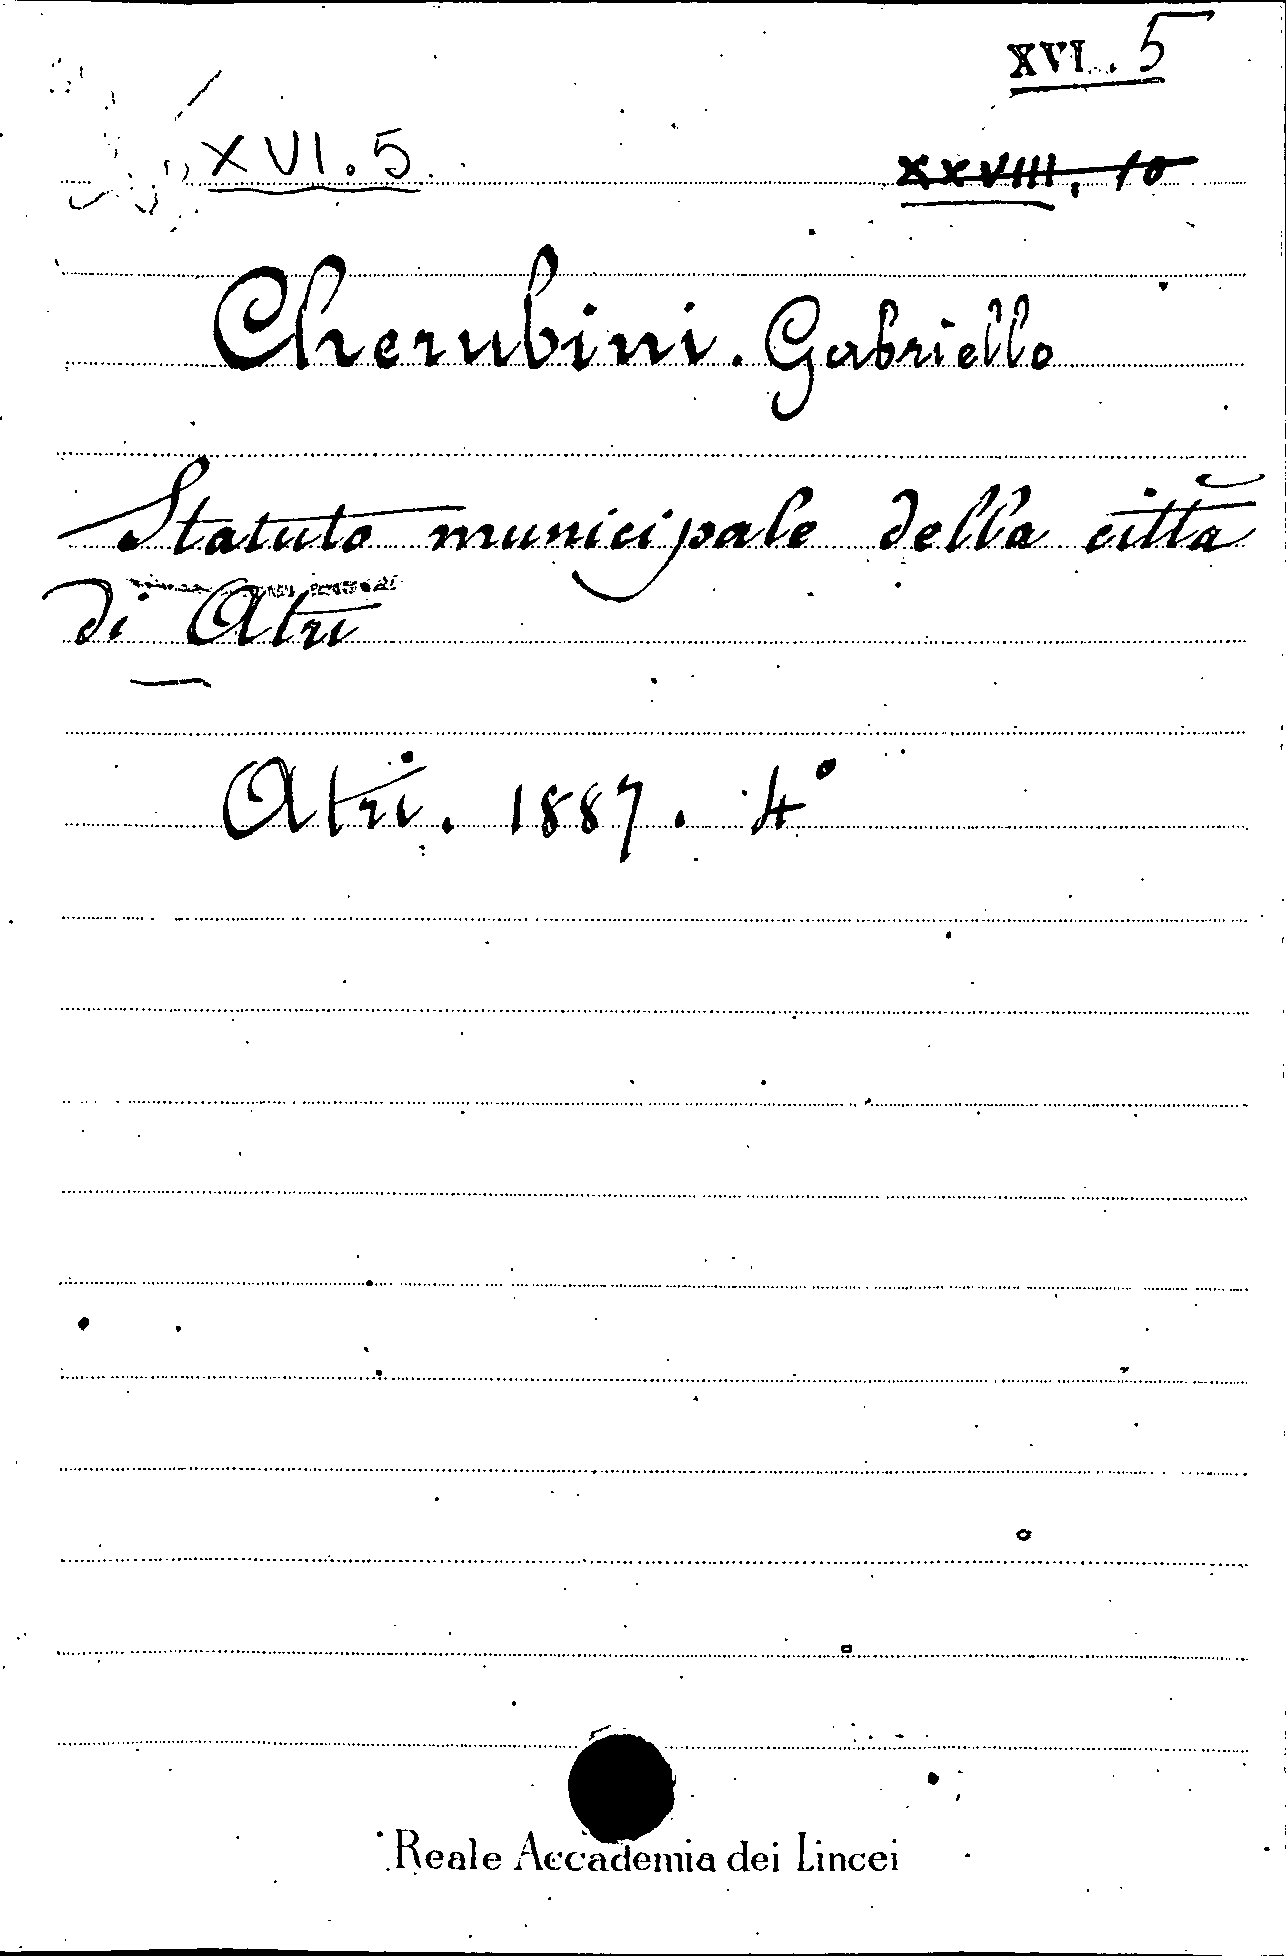 XVI. 5
XVI. 5
XXVIII. 10
Cherubini. Gabriello
Statuto municipale della città
di Atri
Atri. 1887. 4°
Reale Accademia dei Lincei